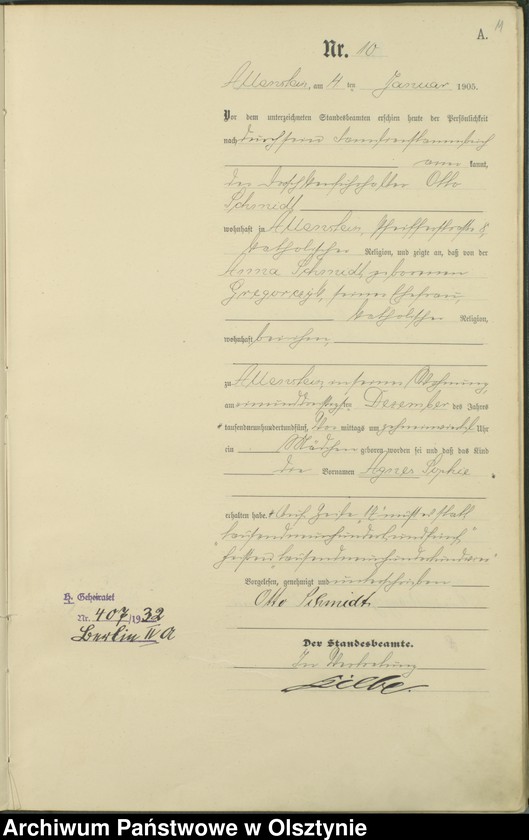 A.
14
Nr. 10
Allenstein, am 4 ten Januar 1905.
Vor dem unterzeichneten Standesbeamten erschien heute der Persönlichkeit
nach durch sein Familienstammbuch
anerkannt,
der Otto
Schmidt
wohnhaft in Allenstein, Pfeifferstraße 8,
katholischer Religion, und zeigte an, daß von der
Anna Schmidt geborenen
Gregorczyk, seiner Ehefrau,
katholischer Religion,
wohnhaft bei ihm,
zu Allenstein in seiner Wohnung,
am einunddreißigsten Dezember des Jahres
tausendneunhundertundfünf, Vormittags um zehneinviertel Uhr
ein Mädchen geboren worden sei und daß das Kind
die Vornamen Agnes Sophie
erhalten habe. + Auf Zeile 17 muss es statt
"tausendneunhundertundfünf"
heißen "tausendneunhundertundvier"
Vorgelesen, genehmigt und unterschrieben
Otto Schmidt
Der Standesbeamte.
In Vertretung
H. Geheiratet
Nr. 407/1932
Berlin IV A
Archiwum Państwowe w Olsztynie